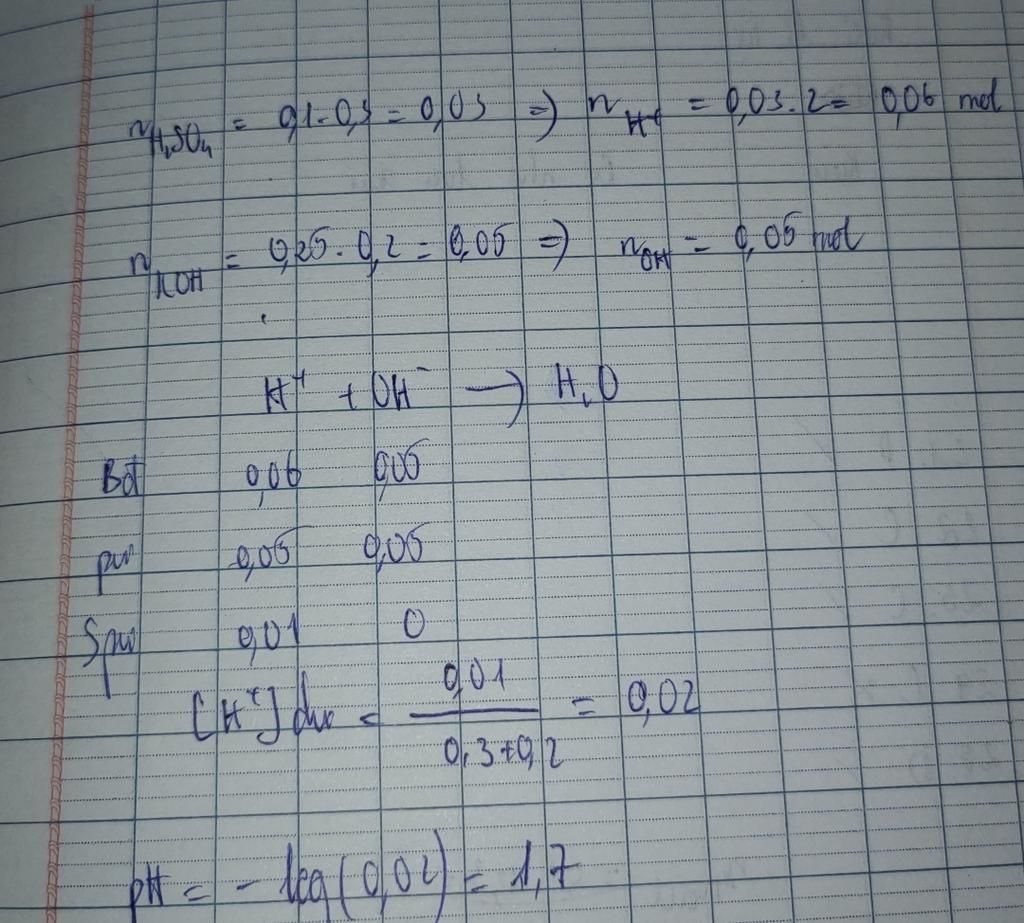 n H₂SO₄ = 0,1 . 0,3 = 0,03 => n H⁺ = 0,03 . 2 = 0,06 mol
n KOH = 0,25 . 0,2 = 0,05 => n OH = 0,05 mol
H⁺ + OH⁻ → H₂O
Bđ 0,06 0,05
pư 0,05 0,05
Spư 0,01 0
[H⁺] dư = 0,01 / 0,3+0,2 = 0,02
pH = - log(0,02) = 1,7